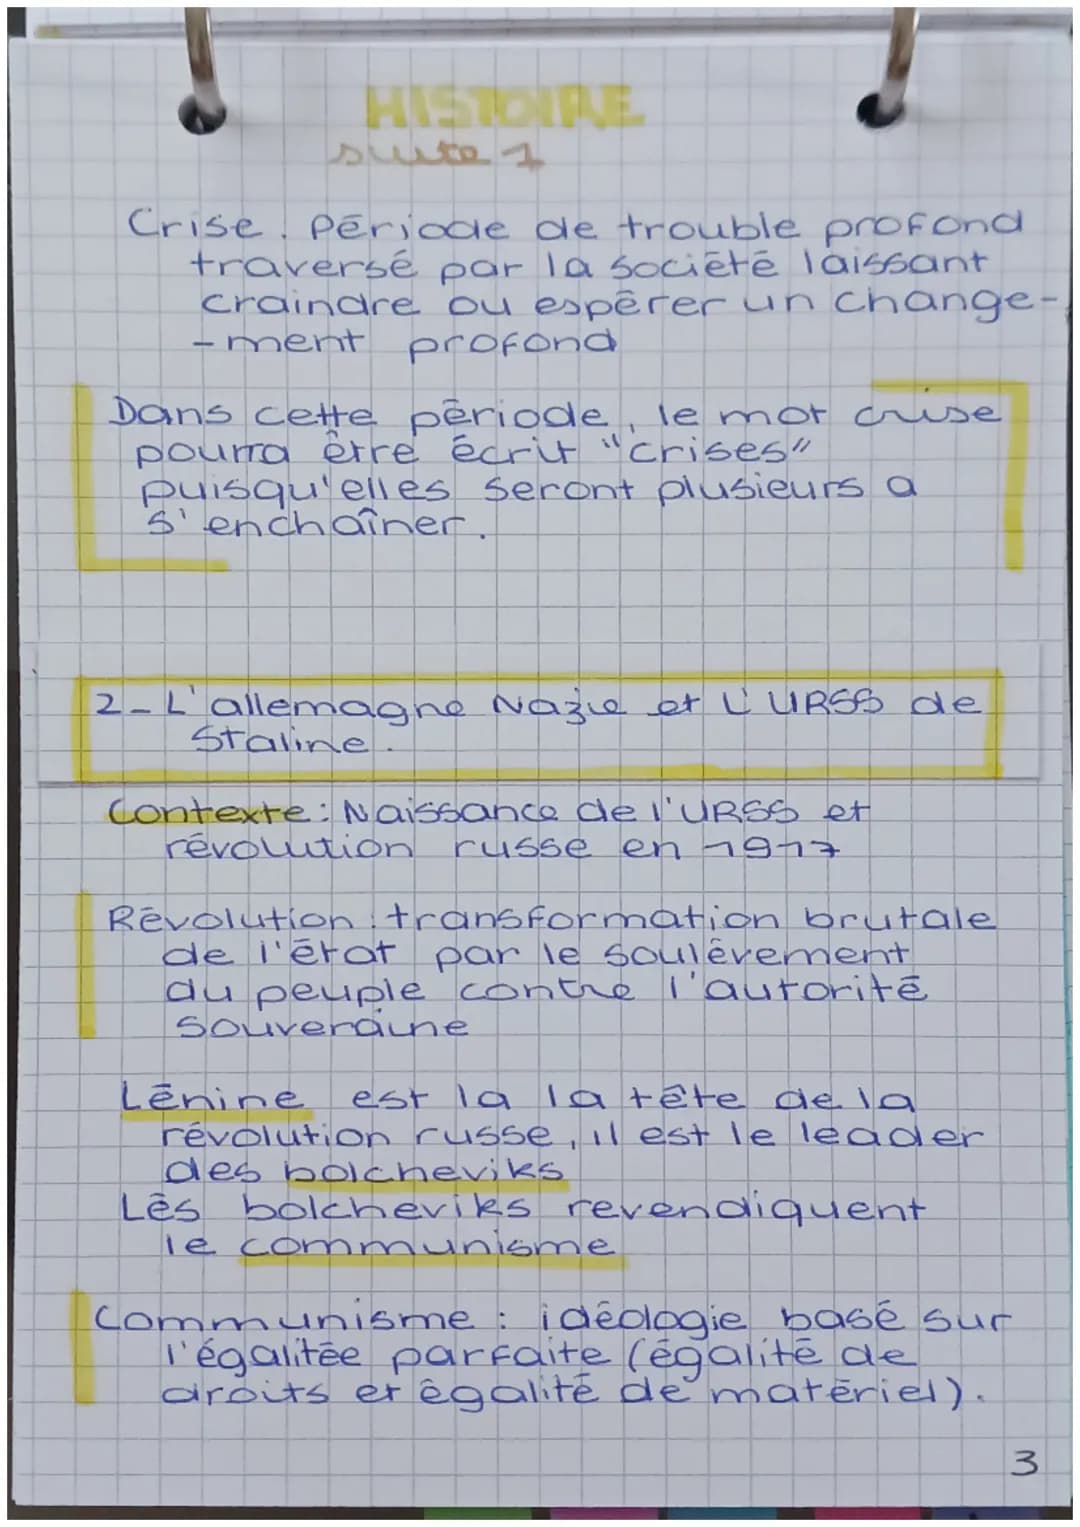 HISTOIRE
suite 1
Crise. Période de trouble profond
traversé par la société laissant
craindre ou espérer un change-
-ment profond
Dans cette période, le mot crise
pourra être écrit "crises"
puisqu'elles seront plusieurs a
s'enchaîner.
2-L'allemagne Nazie et L'URSS de
Staline.
Contexte: Naissance de l'URSS et
révolution russe en 1917
Révolution: transformation brutale
de l'état par le soulèvement
du peuple contre l'autorité
souveraine
Lénine est la la tête de la
révolution russe, il est le leader
des bolcheviks
Lés bolcheviks revendiquent
le communisme
Communisme : idéologie basé sur
l'égalitée parfaite (égalité de
droits et égalité de matériel).
3